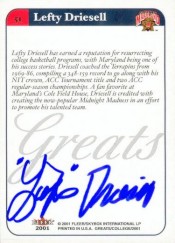 51
Lefty Driesell
Lefty Driesell has earned a reputation for resurrecting
college basketball programs, with Maryland being one
of his success stories. Driesell coached the Terrapins from
1969-86, compiling a 348-159 record to go along with his
NIT crown, ACC Tournament title and two ACC
regular-season championships. A fan favorite at
Maryland's Cole Field House, Driesell is credited with
creating the now popular Midnight Madness in an
effort to promote his talented team.
Greats
"Lefty" Driesell
FLEER
2001
© 2001 FLEER/SKYBOX INTERNATIONAL LP
PRINTED IN U.S.A. GREATS/COLLEGE/2001